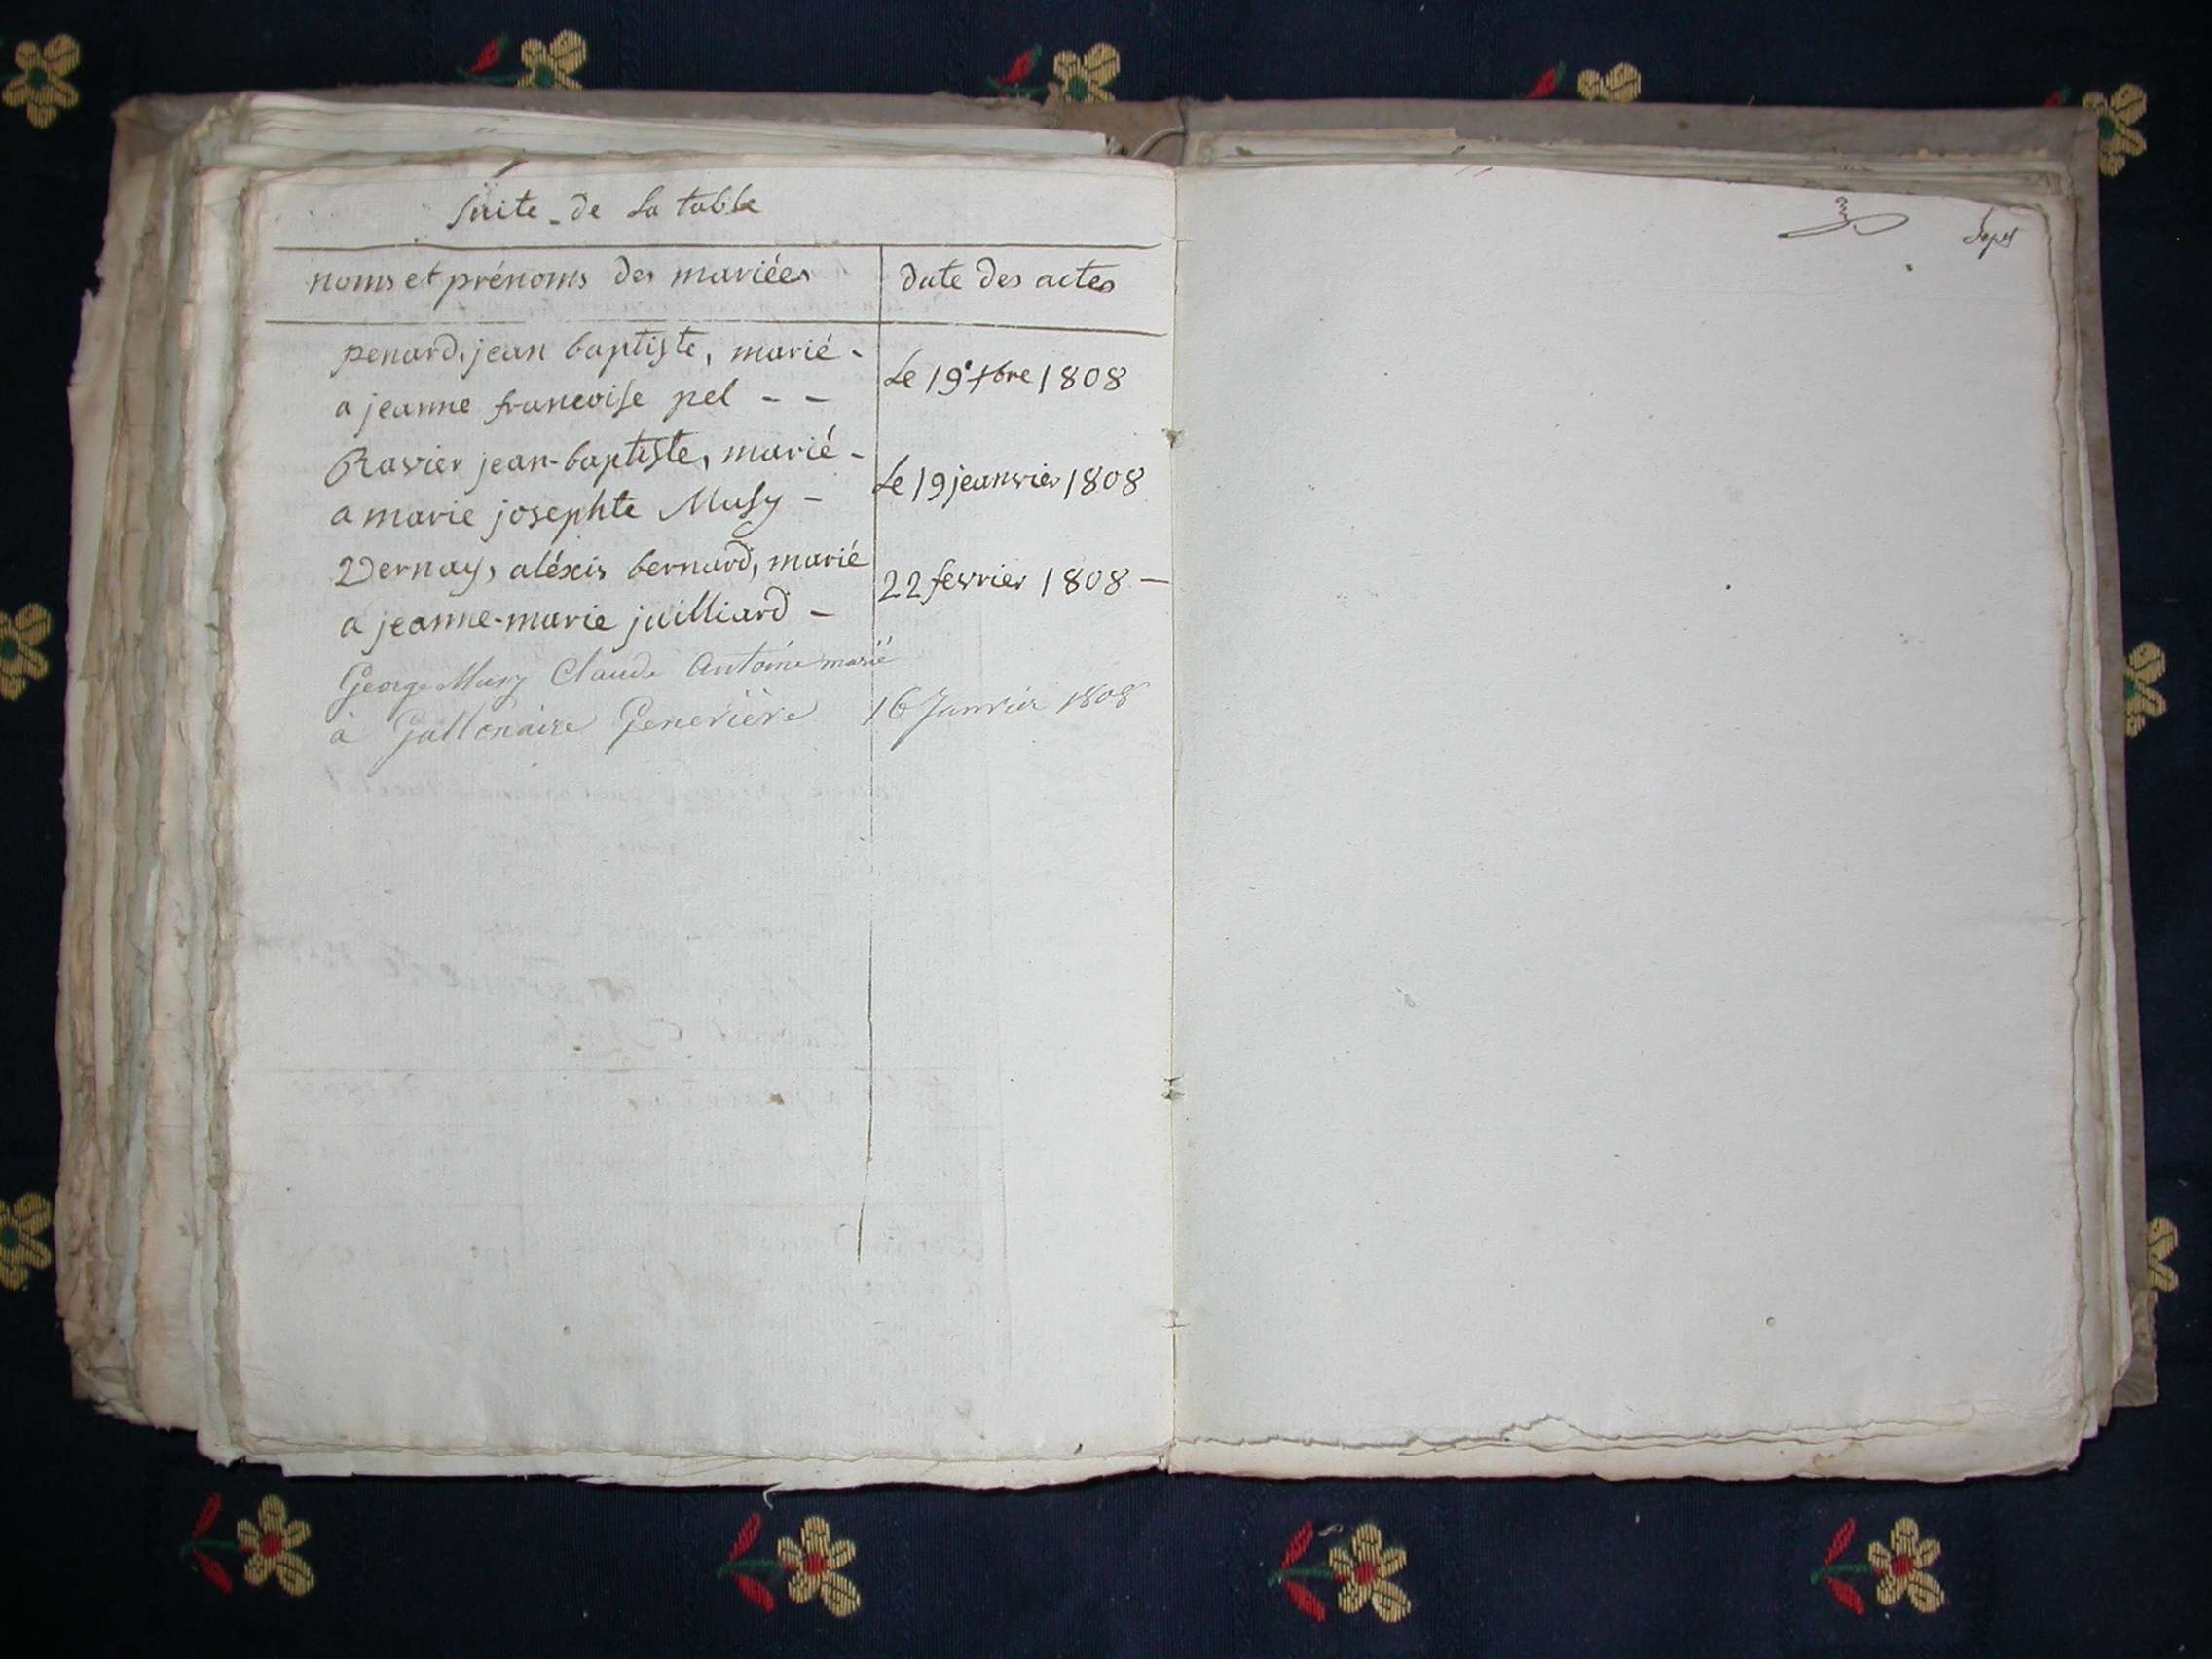 Suite de la table
noms et prénoms des mariées date des actes
penard, jean baptiste, marié -
a jeanne francoise pel - - Le 19 7bre 1808
Ravier jean-baptiste, marié -
a marie josephte Musy - Le 19 jeanvier 1808
Vernay, aléxis bernard, marié
a jeanne-marie juilliard - 22 fevrier 1808 -
George Musy Claude Antoine marié
à Gallonaire Genevière 16 Janvier 1808